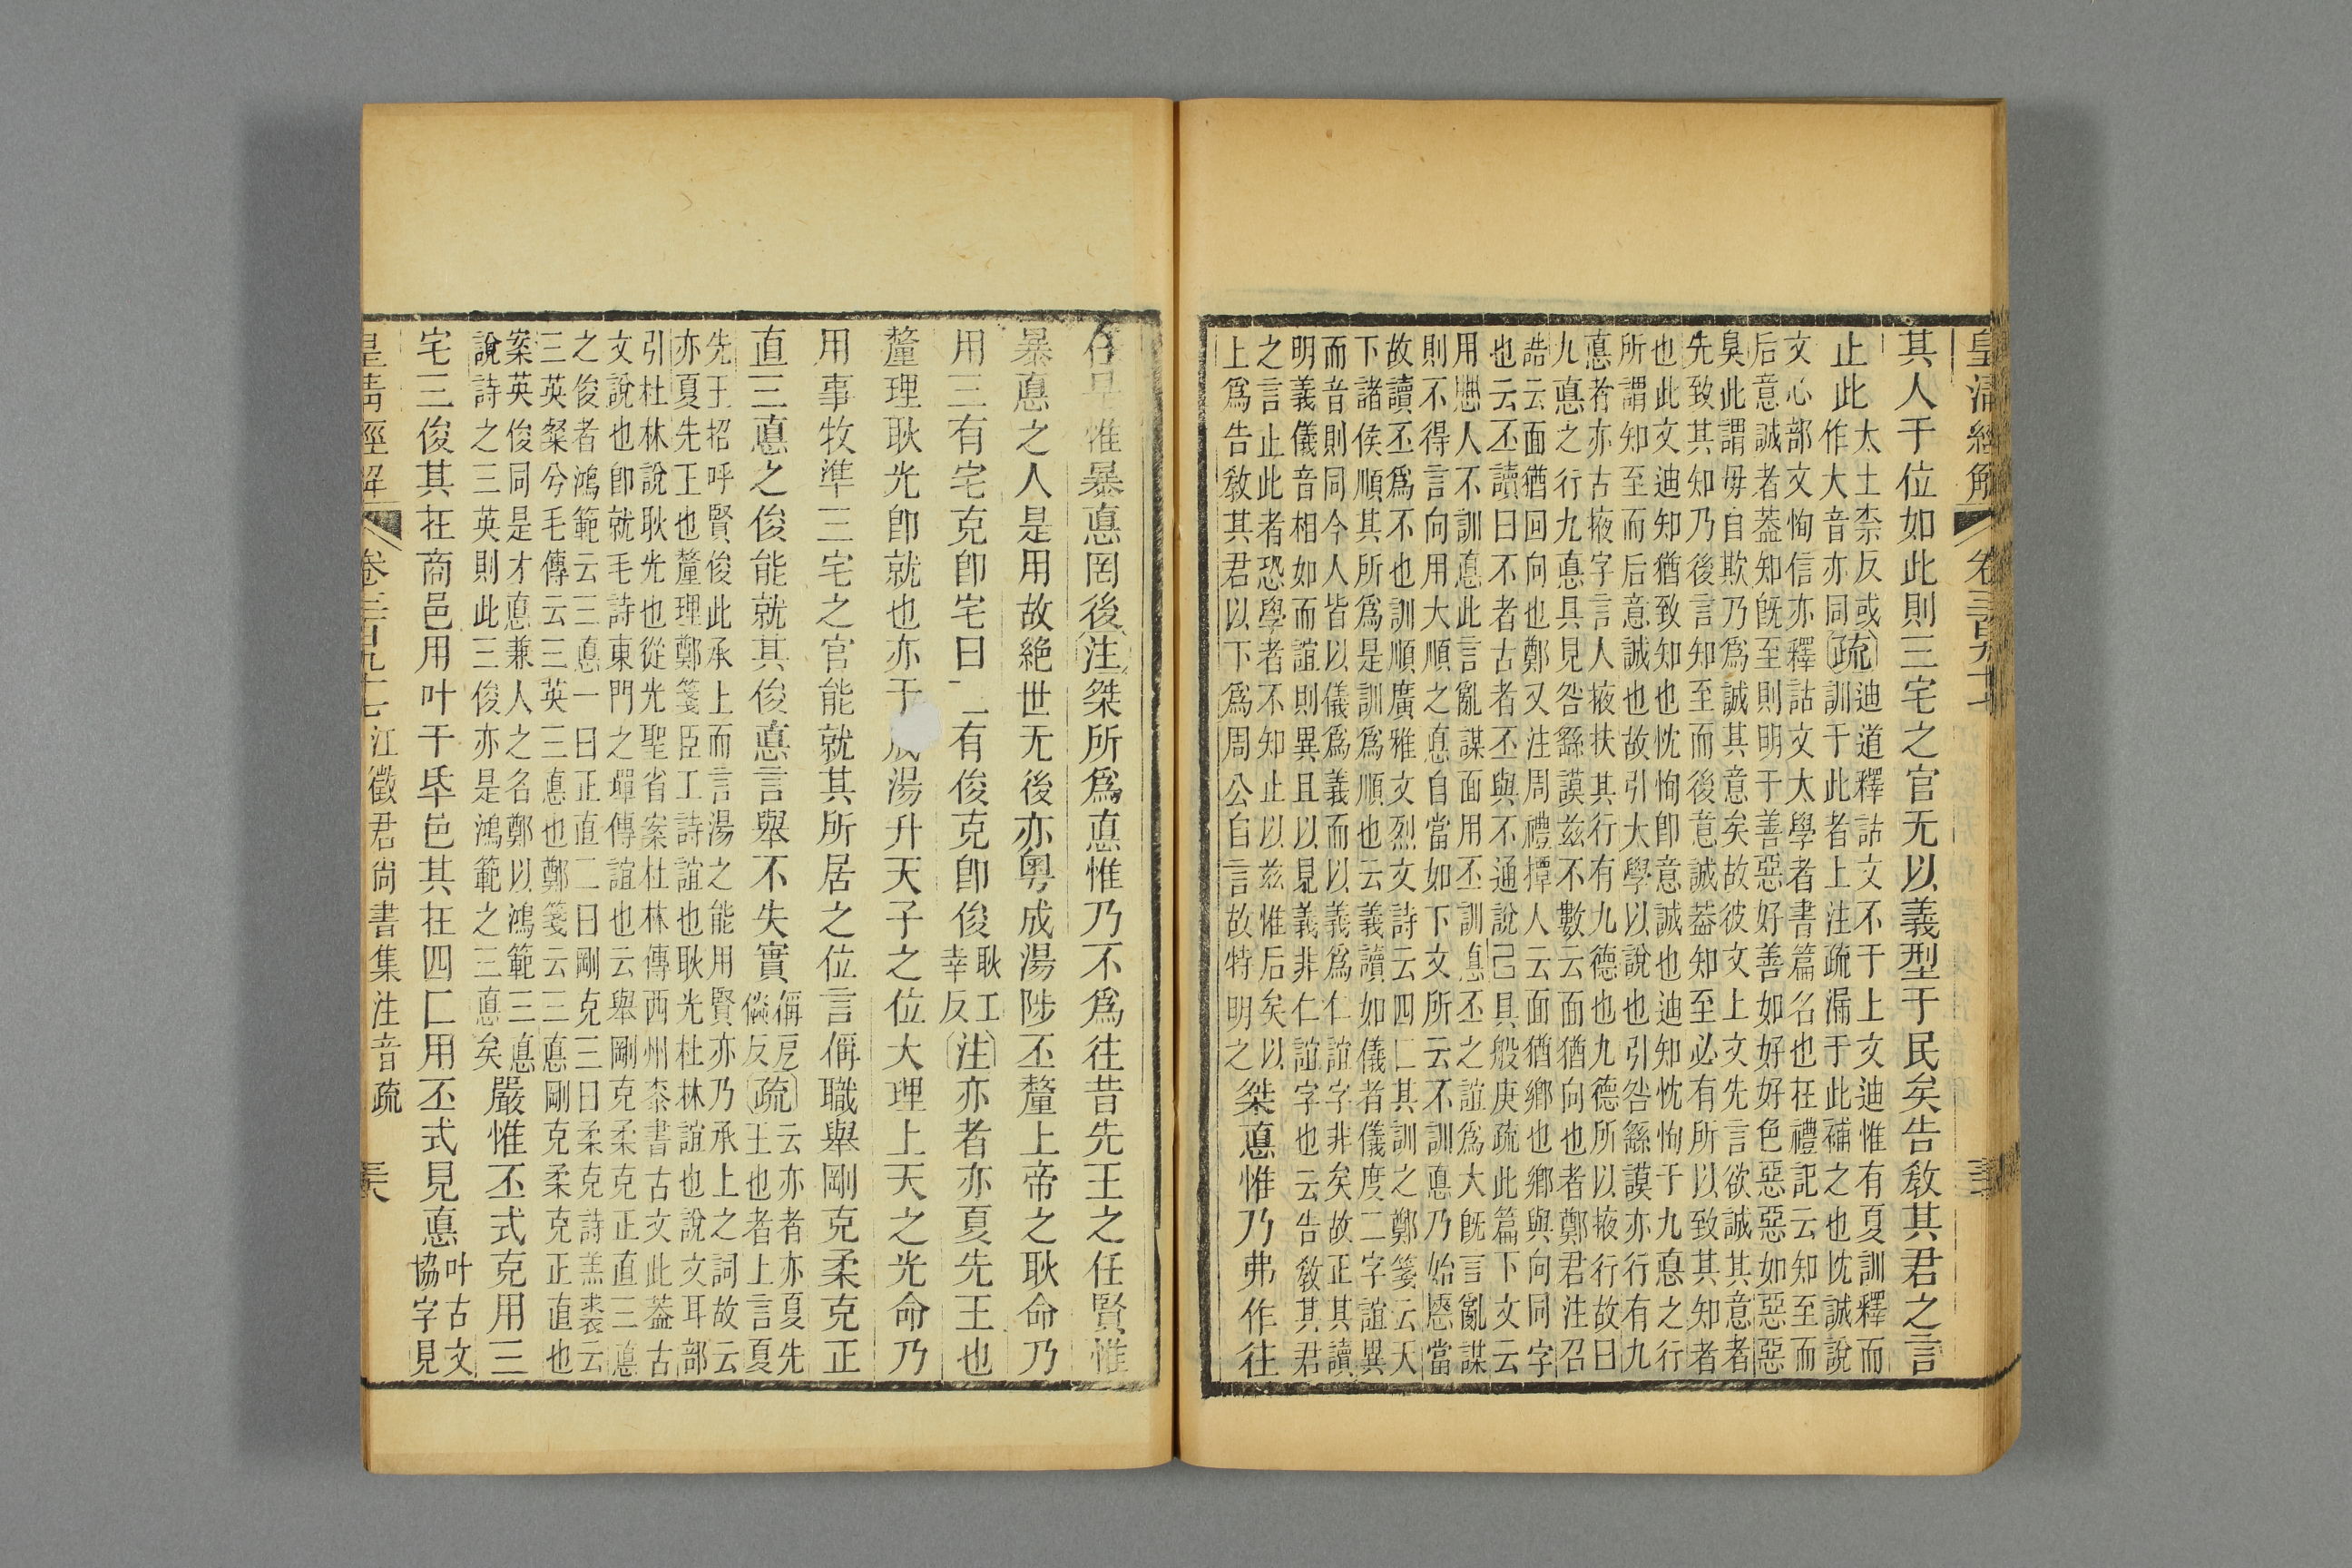 皇清經解 卷三百九十七
其人于位如此則三宅之官无以義型于民矣告敎其君之言
止此
太土柰反或
作大音亦同
疏
迪道釋詁文不于上文迪惟有夏訓釋而
訓于此者上注疏漏于此補之也忱誠說
文心部文恂信亦釋詁文太學者書篇名也在禮記云知至而
后意誠者葢知旣至則明于善惡好善如好好色惡惡如惡惡
臭此謂毋自欺乃爲誠其意矣故彼文上文先言欲誠其意者
先致其知乃後言知至而後意誠葢知至必有所以致其知者
也此文迪知猶致知也忱恂卽意誠也迪知忱恂于九悳之行
所謂知至而后意誠也故引大學以說也引咎繇謨亦行有九
悳者亦古掖字言人掖扶其行有九德也九德所以掖行故曰
九悳之行九悳具見咎繇謨兹不數云面猶向也者鄭君注召
誥云面猶回向也鄭又注周禮撢人云面猶鄉也鄉與向同字
也云丕讀曰不者古者丕與不通說已具般庚疏此篇下文云
用㥶人不訓悳此言亂謀面用丕訓悳丕之誼爲大旣言亂謀
則不得言向用大順之悳自當如下文所云不訓悳乃始𢠵當
故讀丕爲不也訓順廣雅文烈文詩云四匸其訓之鄭箋云天
下諸侯順其所爲是訓爲順也云義讀如儀者儀度二字誼異
而音則同今人皆以儀爲義而以義爲仁誼字非矣故正其讀
明義儀音相如而誼則異且以見義非仁誼字也云告敎其君
之言止此者恐學者不知止以兹惟后矣以
上爲告敎其君以下爲周公自言故特明之
桀悳惟乃弗作往
任是惟暴悳罔後
注
桀所爲悳惟乃不爲往昔先王之任賢惟
暴悳之人是用故絕世无後亦粤成湯陟丕釐上帝之耿命乃
用三有宅克卽宅曰三有俊克卽俊
耿工
幸反
注
亦者亦夏先王也
釐理耿光卽就也亦于成湯升天子之位大理上天之光命乃
用事牧準三宅之官能就其所居之位言偁職舉剛克柔克正
直三悳之俊能就其俊悳言舉不失實
偁尼
儯反
疏
云亦者亦夏先
王也者上言夏
先王招呼賢俊此承上而言湯之能用賢亦乃承上之詞故云
亦夏先王也釐理鄭箋臣工詩誼也耿光杜林誼也說文耳部
引杜林說耿光也從光聖省案杜林傳西州桼書古文此葢古
文說也卽就毛詩東門之墠傳誼也云舉剛克柔克正直三悳
之俊者鴻範云三悳一曰正直二曰剛克三曰柔克詩羔裘云
三英粲兮毛傳云三英三悳也鄭箋云三悳剛克柔克正直也
案英俊同是才悳兼人之名鄭以鴻範三悳
說詩之三英則此三俊亦是鴻範之三悳矣
嚴惟丕式克用三
宅三俊其在商邑用叶于氒邑其在四匸用丕式見悳
叶古文
協字見
皇清經解 卷三百九十七 江徵君尙書集注音疏